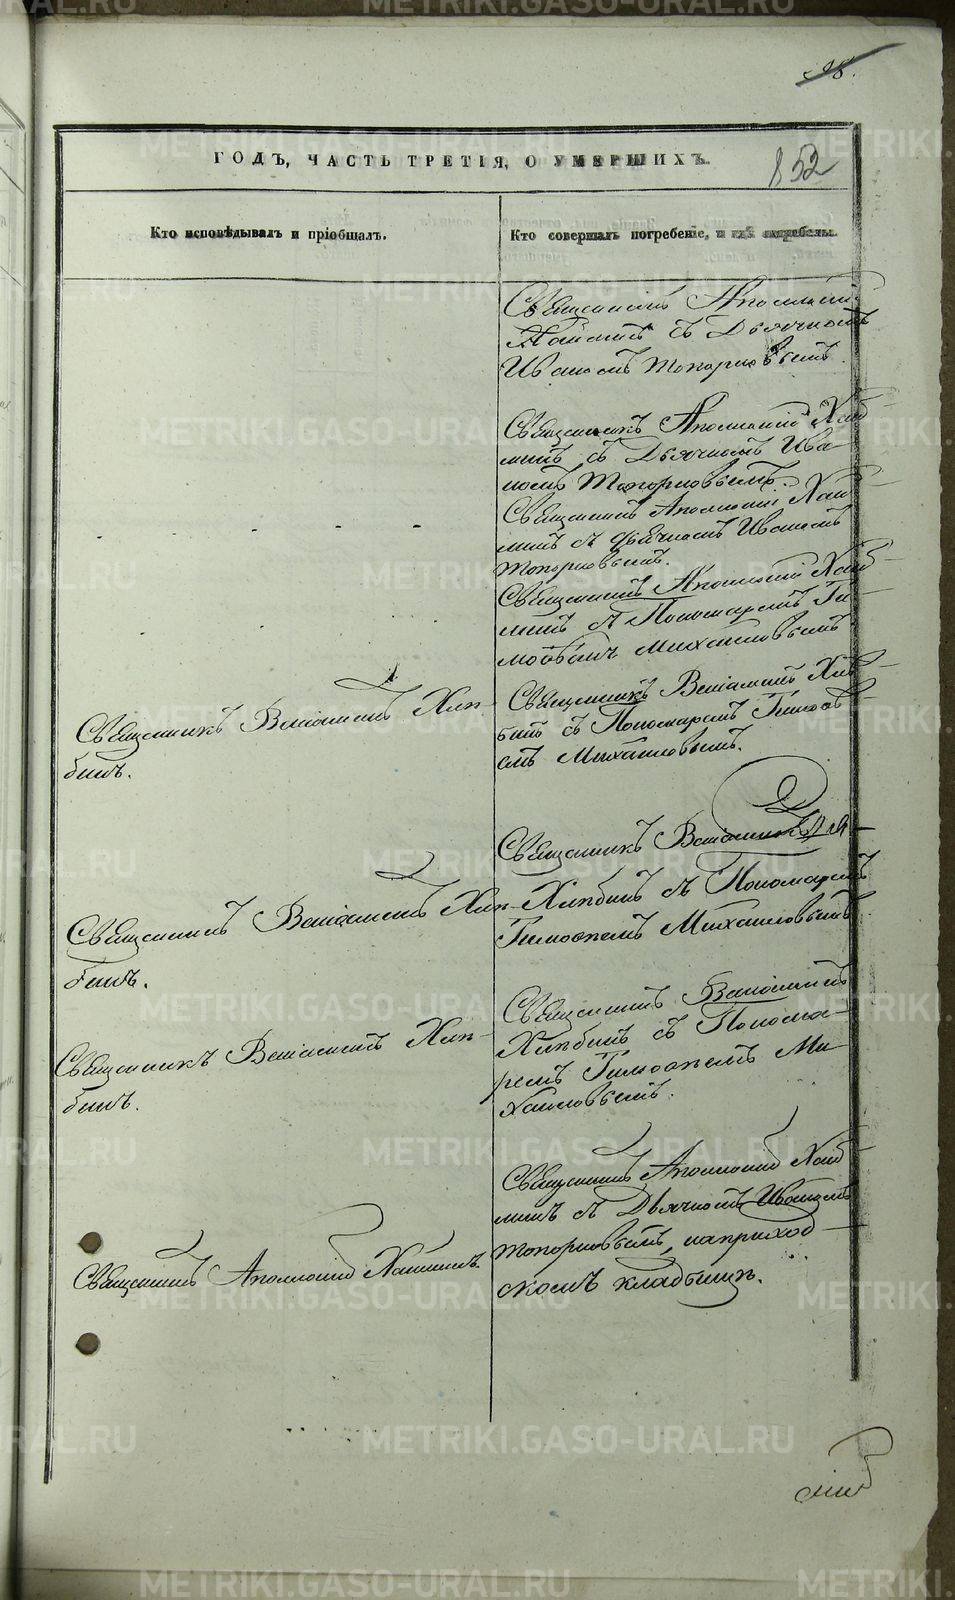 98.
ГОДЪ, ЧАСТЬ ТРЕТІЯ, О УМЕРШИХЪ.
852
Кто исповѣдывалъ и пріобщалъ.
Кто совершалъ погребеніе, и гдѣ погребены.
Священникъ Аполлоній
съ Дьячкомъ
Иваномъ Топорковымъ.
Священникъ Аполлоній
съ Дьячкомъ Ива-
номъ Топорковымъ.
Священникъ Аполлоній
съ Дьячкомъ Иваномъ
Топорковымъ.
Священникъ Аполлоній
съ Пономаремъ Ти-
Михайловымъ
Священникъ Веніаминъ Хлѣ-
бинъ.
Священникъ Веніаминъ Хлѣ-
бинъ съ Пономаремъ
Михайловымъ.
Священникъ Веніаминъ Хлѣ-
бинъ.
Священникъ Веніаминъ
Хлѣбинъ съ Пономаремъ
Тимофѣемъ Михайловымъ
Священникъ Веніаминъ Хлѣ-
бинъ.
Священникъ Веніаминъ
Хлѣбинъ съ Понома-
ремъ Тимофѣемъ Ми-
хайловымъ.
Священникъ Аполлоній
Священникъ Аполлоній
съ Дьячкомъ Иваномъ
Топорковымъ, на приход-
скомъ кладбищѣ.
METRIKI.GASO-URAL.RU